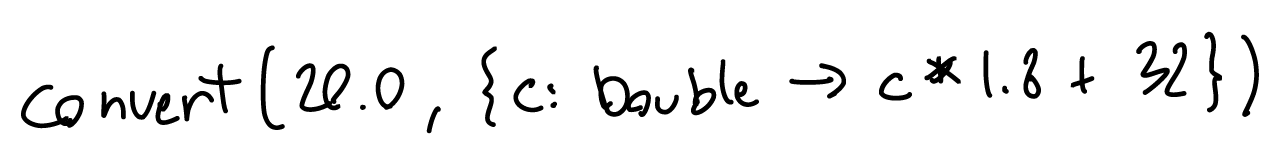 convert(20.0, {c: Double → c*1.8 + 32})